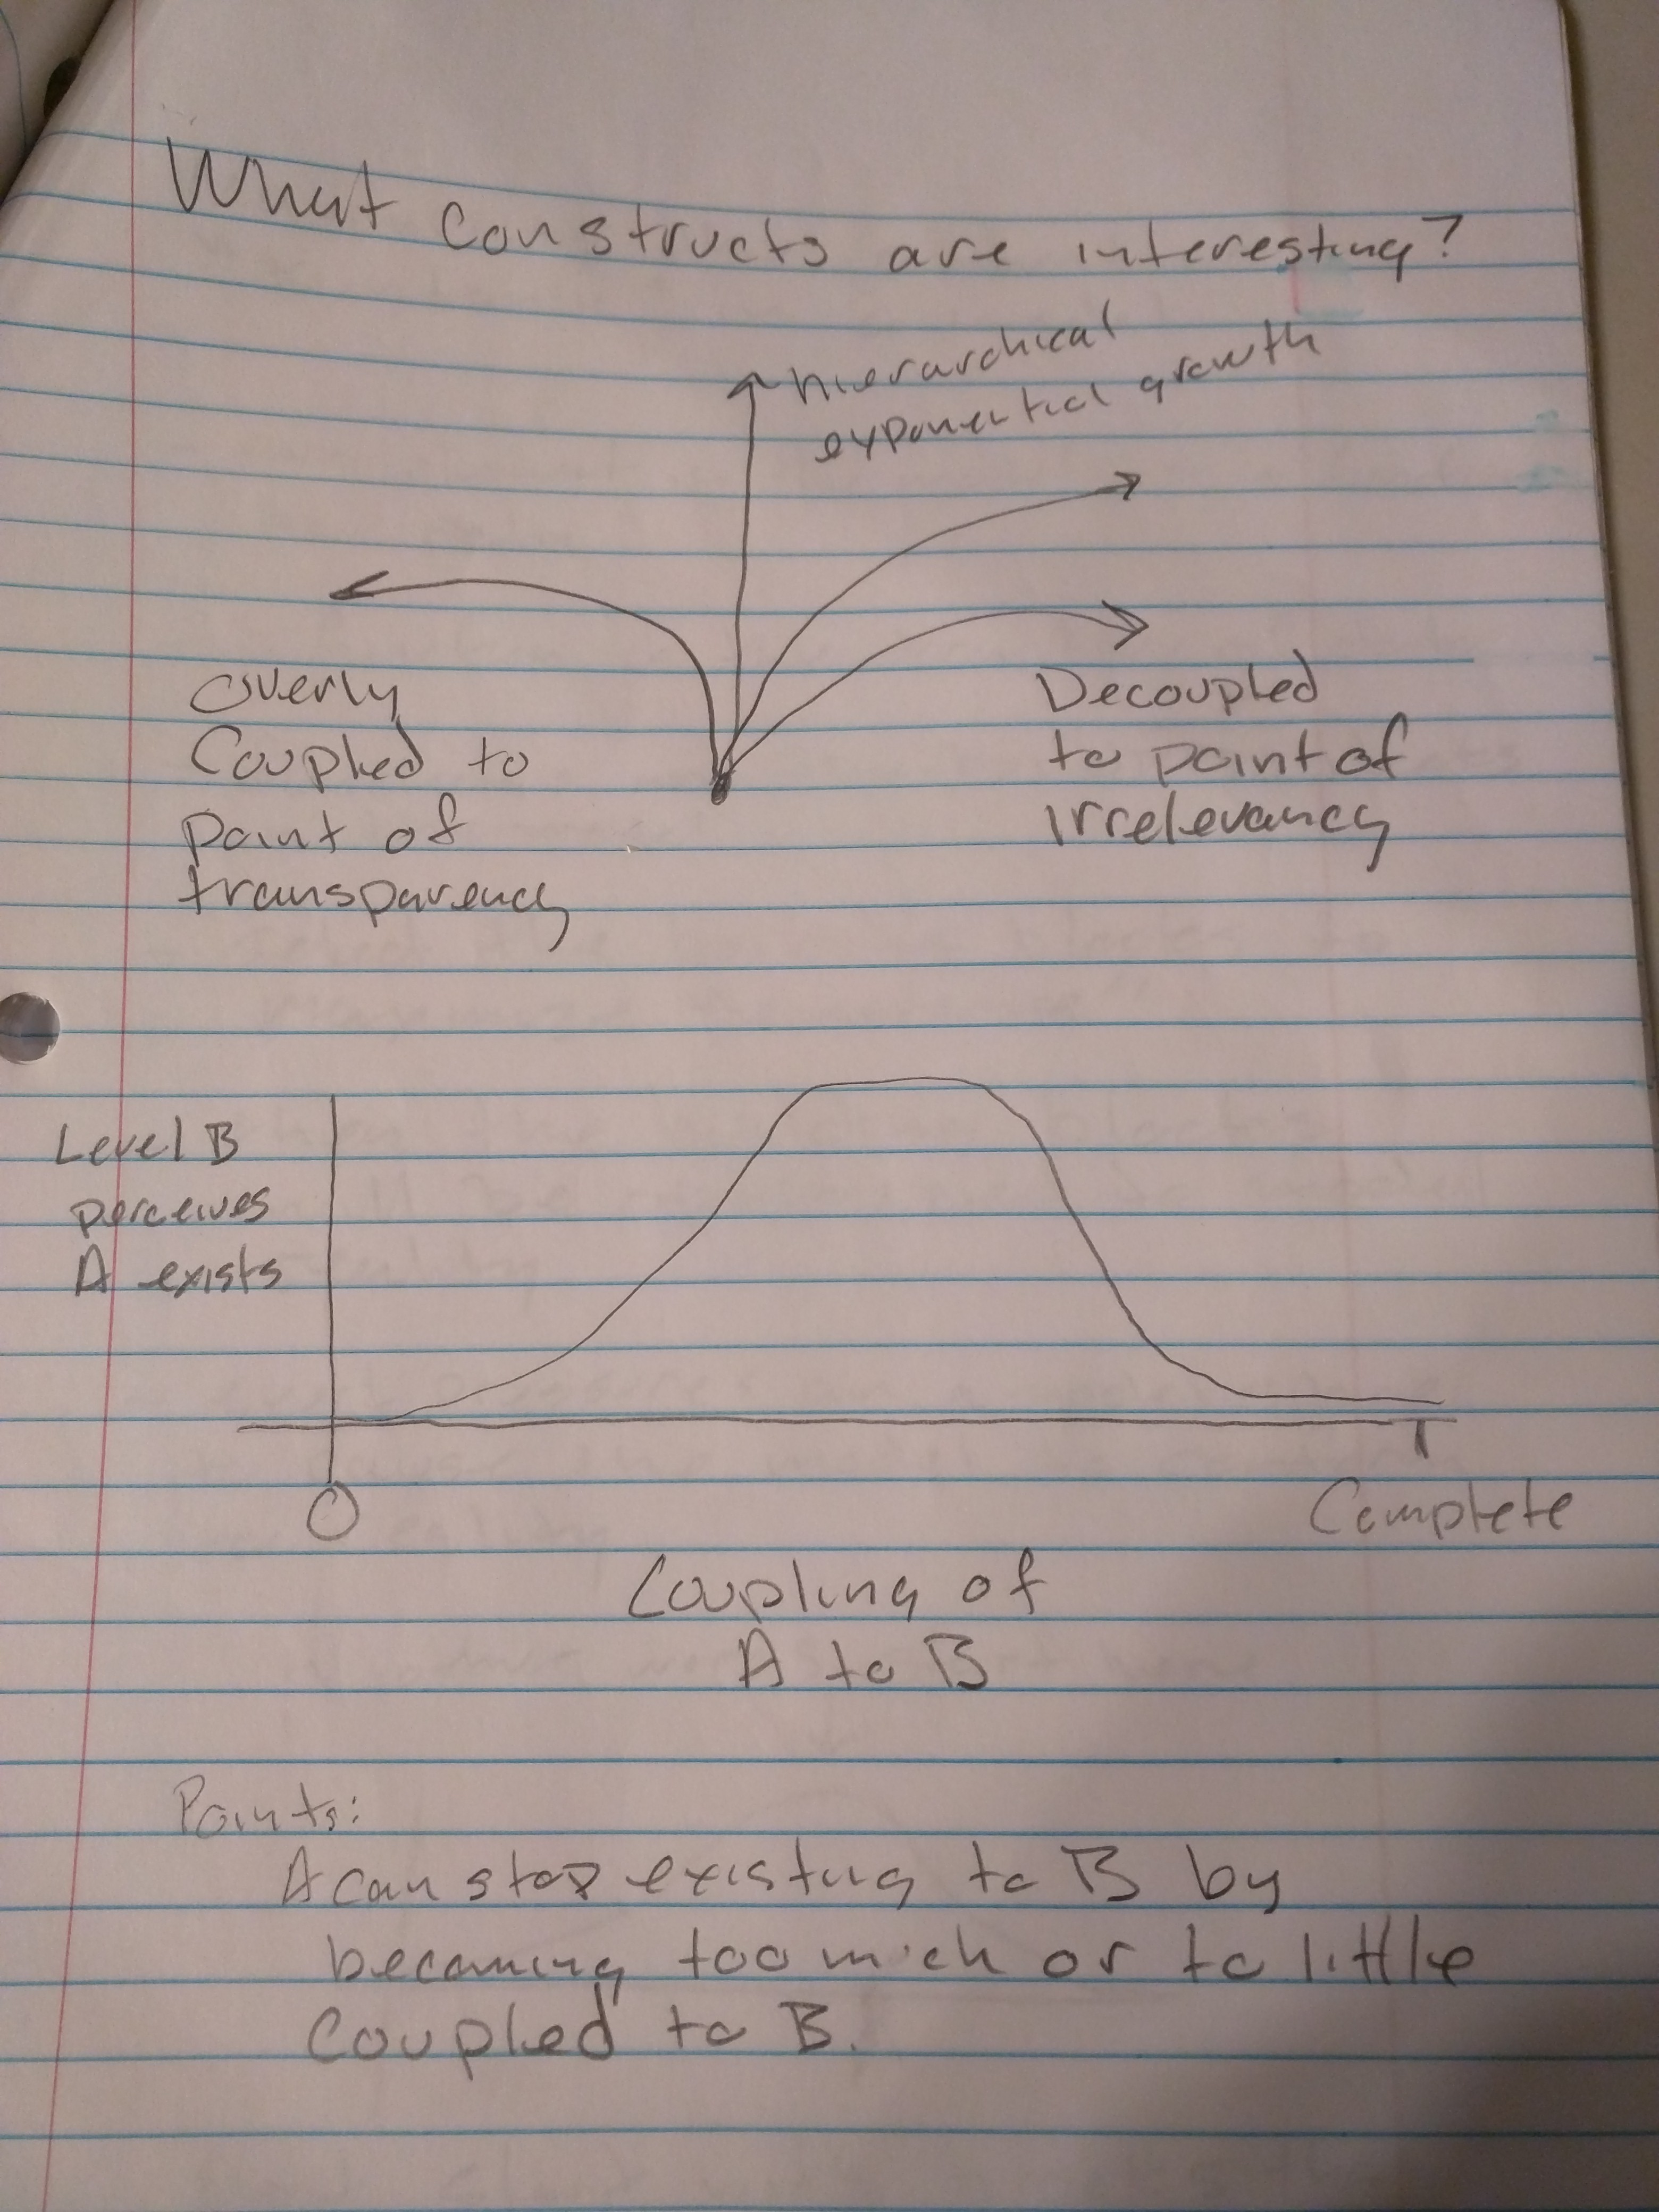 What constructs are interesting?
hierarchical
exponential growth
Overly
Coupled to
point of
transparency
Decoupled
to point of
irrelevancy
Level B
perceives
A exists
0
Complete
Coupling of
A to B
Points:
A can stop existing to B by
becoming too much or to little
coupled to B.